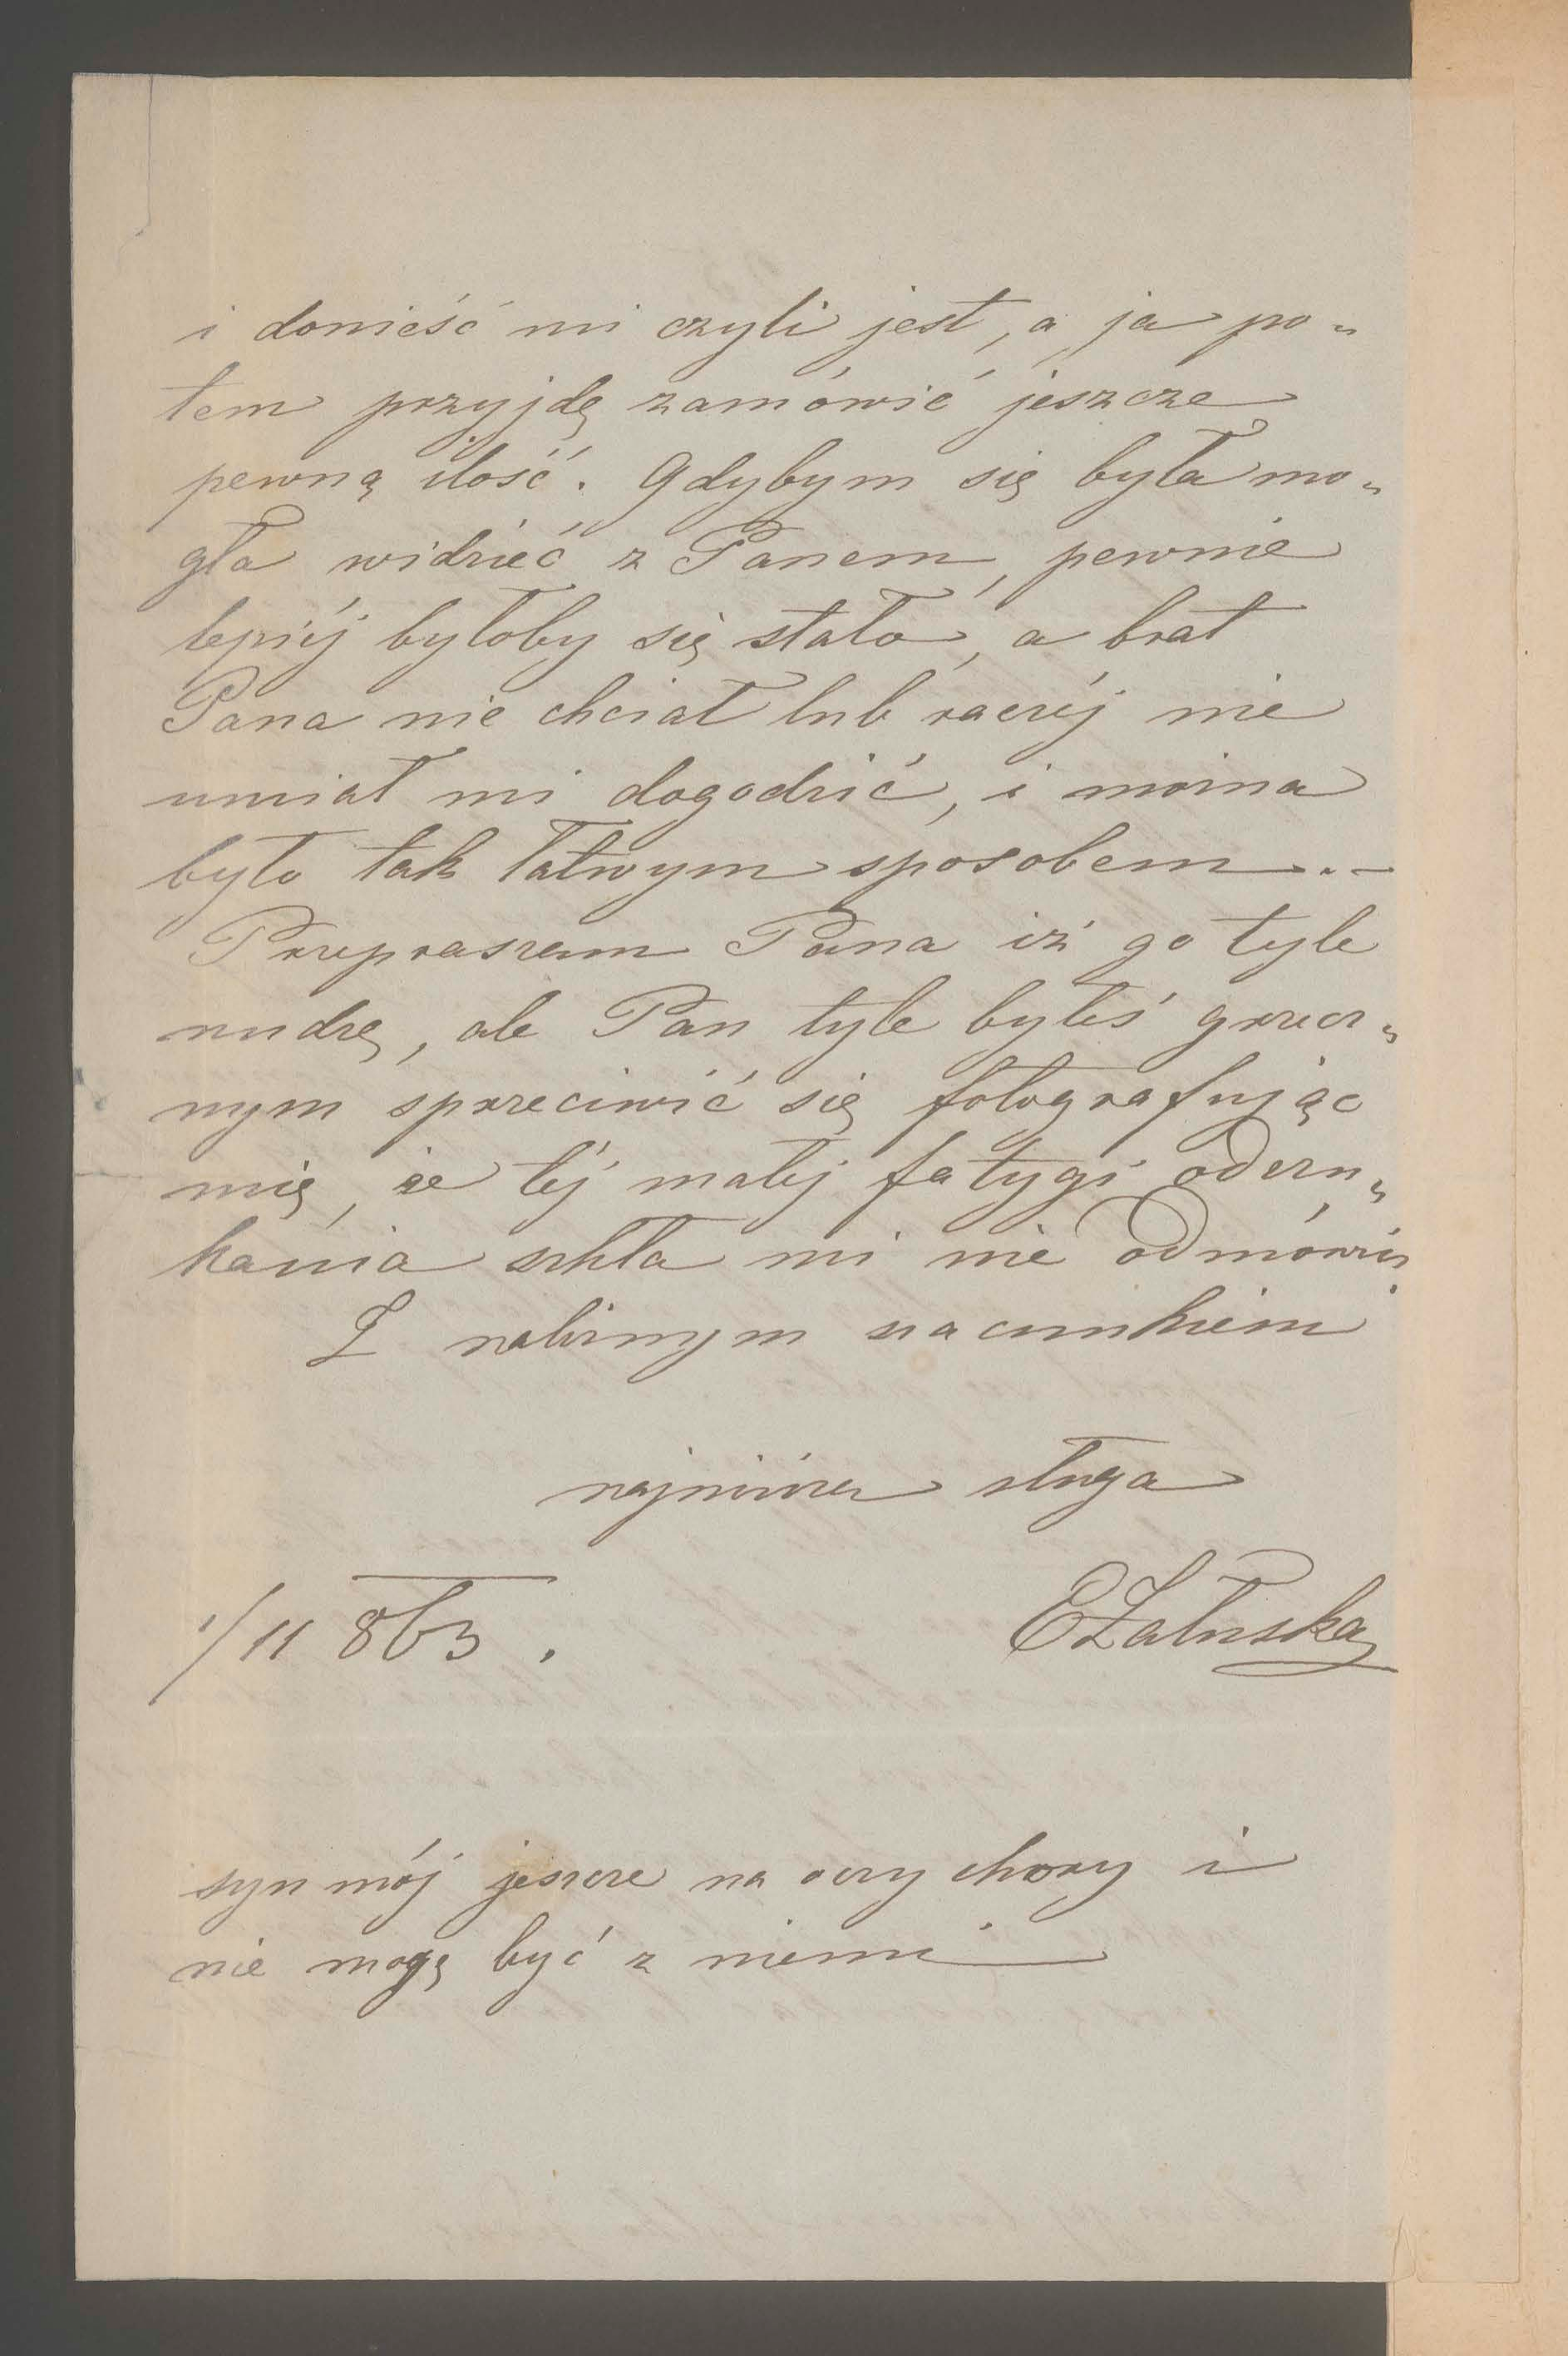 i donieść mi czyli jest, a ja po„
tem przyjdę zamówić jeszcze
pewną ilość. Gdybym się była mo„
gła widzieć z Panem, pewnie
lepiéj byłoby się stało, a brat
Pana nie chciał lub raczéj nie
umiał mi dogodzić, i można
było tak łatwym sposobem. –
Przepraszam Pana iż go tyle
nudzę, ale Pan tyle byłeś grzecz„
nym sprzeciwić się fotografując
mię, że téj małej fatygi odszu„
kania szkła mi nie odmówisz.
Z należnym szacunkiem
najniższa sługa
1/11 863. EZałuska
syn mój jeszcze na oczy chory i
nie mogę być z niemi